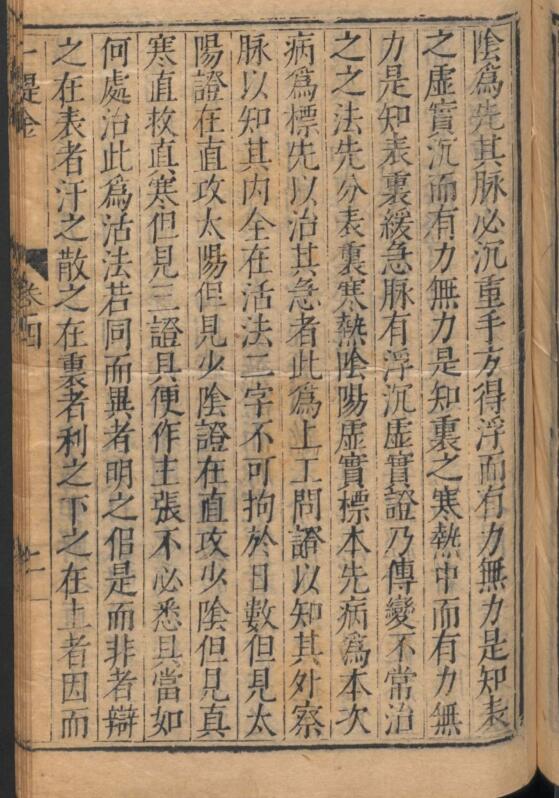 陰爲先其脉必沉重手方得浮而有力無力是知表
之虛實沉而有力無力是知裏之寒熱中而有力無
力是知表裏緩急脉有浮沉虛實證乃傳變不常治
之之法先分表裏寒熱陰陽虛實標本先病爲本次
病爲標先以治其急者此爲上工問證以知其外察
脉以知其内全在活法二字不可拘於日數但見太
陽證在直攻太陽但見少陰證在直攻少陰但見真
寒直救真寒但見三證具便作主張不必悉具當如
何處治此爲活法若同而異者明之佀是而非者辯
之在表者汗之散之在裏者利之下之在上者因而
卷四